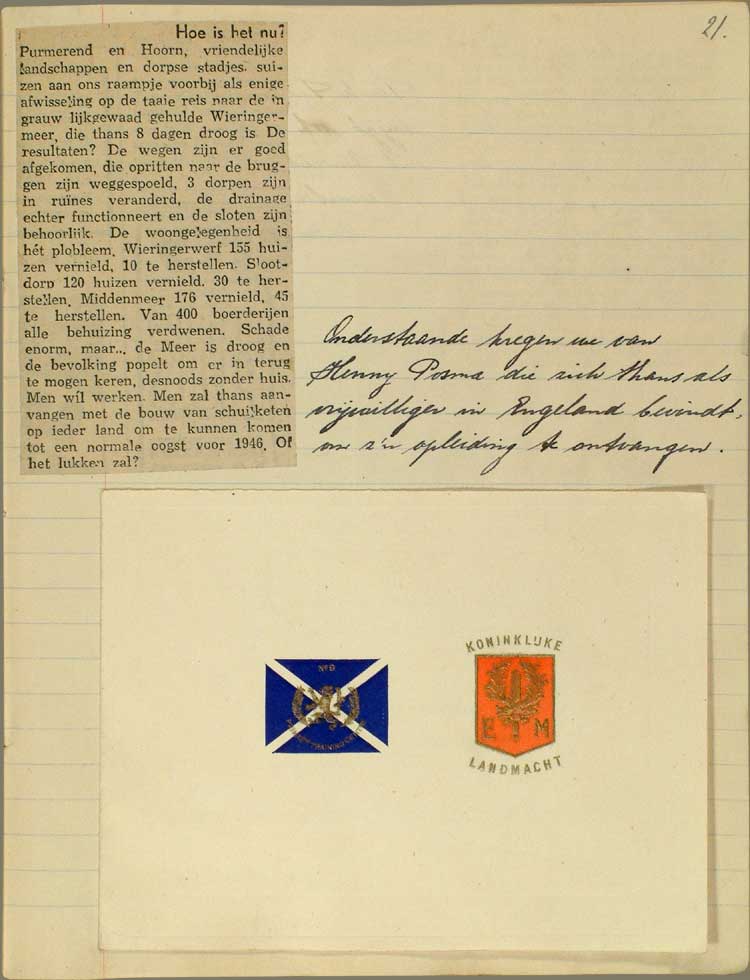 21.
Hoe is het nu?
Purmerend en Hoorn, vriendelijke
landschappen en dorpse stadjes. sui-
zen aan ons raampje voorbij als enige
afwisseling op de taaie reis naar de in
grauw lijkgewaad gehulde Wieringer-
meer, die thans 8 dagen droog is De
resultaten? De wegen zijn er goed
afgekomen, die opritten naar de brug-
gen zijn weggespoeld, 3 dorpen zijn
in ruïnes veranderd, de drainage
echter functionneert en de sloten zijn
behoorlijk. De woongelegenheid is
hét plobleem. Wieringerwerf 155 hui-
zen vernield, 10 te herstellen. Sloot-
dorp 120 huizen vernield. 30 te her-
stellen. Middenmeer 176 vernield, 45
te herstellen. Van 400 boerderijen
alle behuizing verdwenen. Schade
enorm, maar... de Meer is droog en
de bevolking popelt om er in terug
te mogen keren, desnoods zonder huis.
Men wil werken. Men zal thans aan-
vangen met de bouw van schuilketen
op ieder land om te kunnen komen
tot een normale oogst voor 1946. Of
het lukken zal?
Onderstaande kregen we van
Henny Posma die zich thans als
vrijwilliger in Engeland bevindt,
om z'n opleiding te ontvangen.
No 9
TRAINING
KONINKLIJKE
E M
LANDMACHT